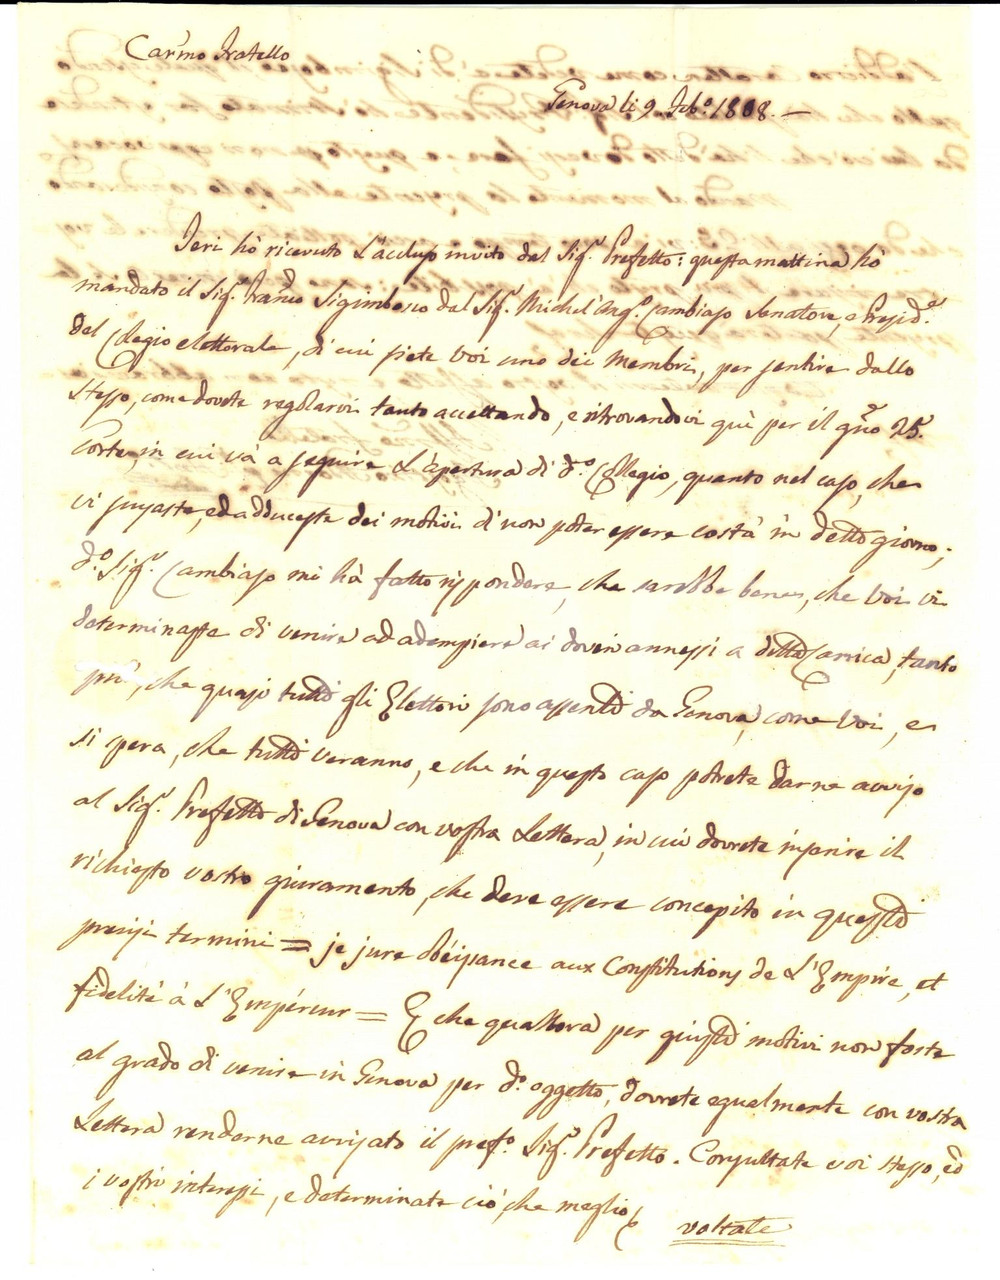 Car.mo Fratello
Genova li 9. Feb.o 1808. —
Jeri hò ricevuto L'accluso invito dal Sig.r Prefetto: questa mattina hò
mandato il Sig.r Fran.co Sigimbosco dal Sig.r Michel'Ang.o Cambiaso Senatore, e Presid.e
del Collegio elettorale, di cui siete voi uno dei Membri, per sentire dallo
stesso, come dovete regolarvi tanto accettando, e ritrovandovi quì per il gno 25.
Corte, in cui và a seguire L'apertura di d.o Collegio, quanto nel caso, che
vi scusaste, ed adduceste dei motivi di non poter essere costà in detto giorno;
d.o Sig.r Cambiaso mi hà fatto rispondere, che sarebbe bene, che Voi vi
determinaste di venire ad adempiere ai doveri annessi a detta Carica, tanto
più, che quasi tutti gli Elettori sono assenti da Genova, come Voi, e
si spera, che tutti veranno, e che in questo caso potrete darne avviso
al Sig.r Prefetto di Genova con vostra Lettera, in cui dovrete inserire il
richiesto vostro giuramento, che deve essere concepito in questi
precisi termini = je jure obéissance aux Constitutions de L'Empire, et
fidelité à L'Empéreur = E che quallora per giusti motivi non foste
al grado di venire in Genova per d.o oggetto, dovrete egualmente con vostra
Lettera renderne avvisato il pref.o Sig.r Prefetto. Consultate voi stesso, ed
i vostri interessi, e determinate ciò, che meglio
voltate